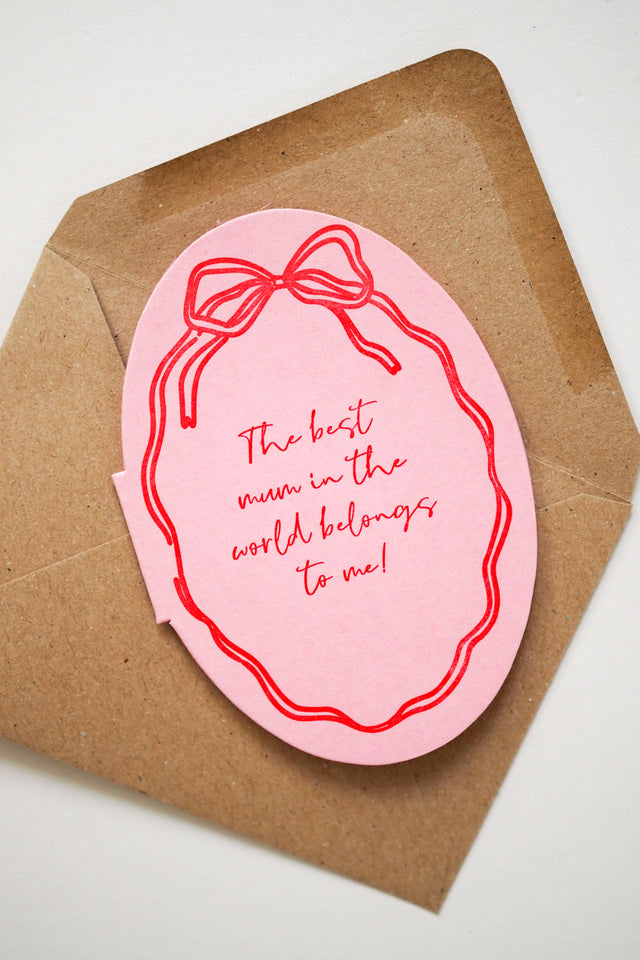 The best
mum in the
world belongs
to me!